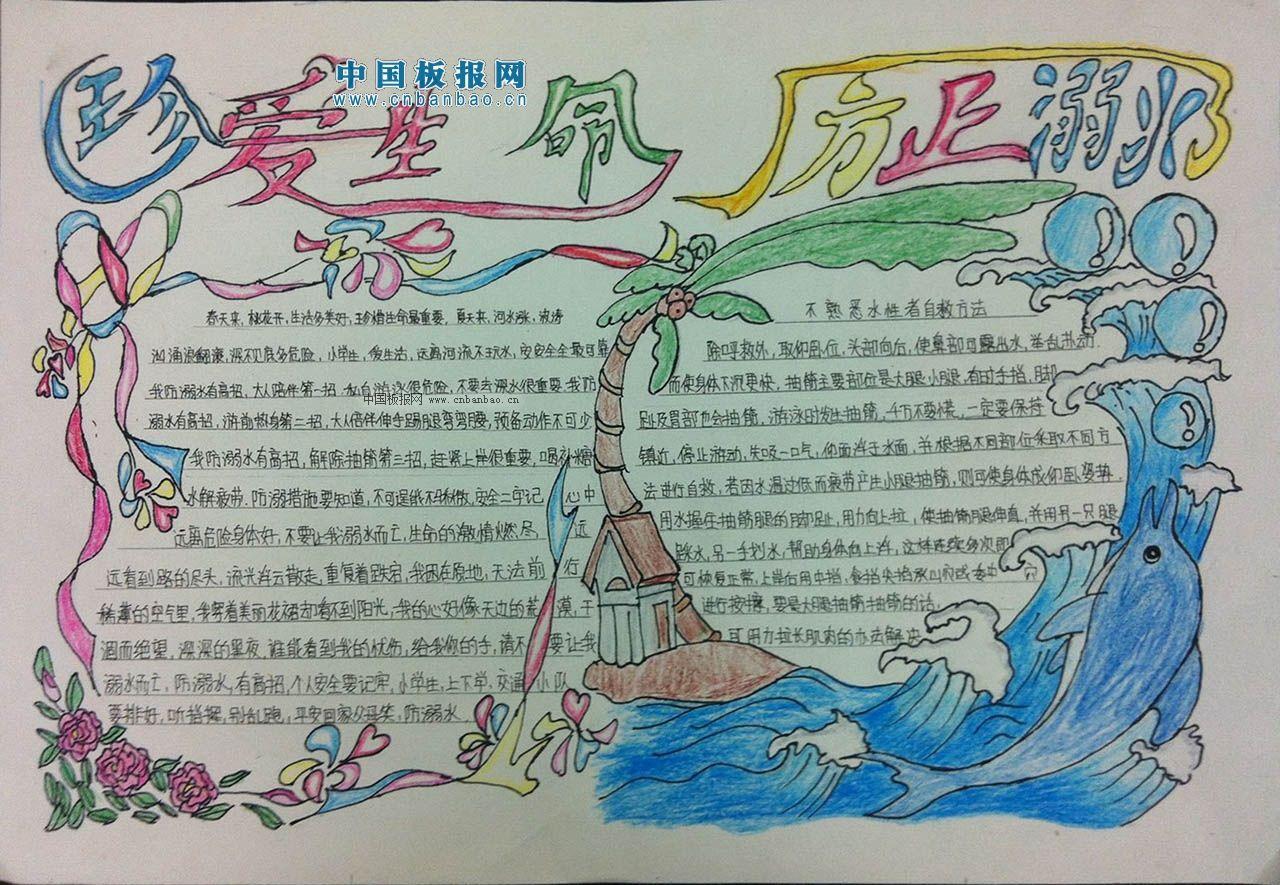 珍爱生命 方正溺水
中国板报网
www.cnbanbao.cn
春天来,桃花开,生活多美好,珍惜生命最重要,夏天来,河水涨,波涛
汹涌浪翻滚,深不见底多危险,小学生,候生活,远离河流不玩水,安安全全最可靠
我防溺水有高招,大人陪伴第一招,私自游泳很危险,不要去深水很重要,我防
中国板报网 www.cnbanbao.cn
溺水有高招,游前热身第二招,大人陪伴伸手踢腿弯弯腰,预备动作不可少
我防溺水有高招,解除抽筋第三招,赶紧上岸很重要,喝补糖
水解疲劳.防溺措施要知道,不可逞能不私散,安全二字记心中
远离危险身体好,不要让我溺水而亡,生命的激情燃尽 远
远看到路的尽头,流光浮云散走,重复着跌宕,我困在原地,无法前行
稀薄的空气里,我穿着美丽花裙却看不到阳光,我的心好像天边的荒漠,干
涸而绝望,深深的黑夜,谁能看到我的忧伤,给我你的手,请不要让我
溺水而亡,防溺水,有高招,个人安全要记牢,小学生,上下学,交通小队
要排好,听指挥,别乱跑,平安回家父母笑,防溺水.
不熟悉水性者自救方法
除呼救外,取仰卧位,头部向后,使鼻部可露出水,举乱扑动
而使身体下沉更快,抽筋主要部位是大腿小腿,有时手指,脚
趾及胃部也会抽筋,游泳时发生抽筋,千万不要慌,一定要保持
镇近,停止游动,先吸一口气,仰面浮于水面,并根据不同部位采取不同方
法进行自救,若因水温过低而疲劳产生小腿抽筋,则可使身体成仰卧姿势
用水握住抽筋腿的脚趾,用力向上拉,使抽筋腿伸直,并用另一只腿
踩水,另一手划水,帮助身体向上浮,这样连续多次即
可恢复正常,上岸后用中指、食指尖掐承山穴或委中穴
进行按摩,要是大腿抽筋抽筋的话
可用力拉长肌肉的办法解决